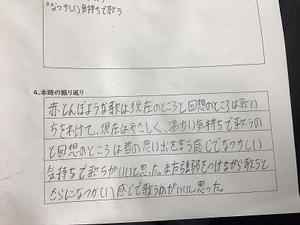 なつかしい気持ちで歌う
4.本時の振り返り
赤とんぼような歌は現在のところと回想のところは歌い
ちをわけて、現在はやさしく、温かい気持ちで歌うの
と回想のところは昔の思い出を言う感じでなつかしい
気持ちで歌うがいいと思った。また強弱をつけながら歌うと
さらになつかしい感じで歌うのがいいし思った。